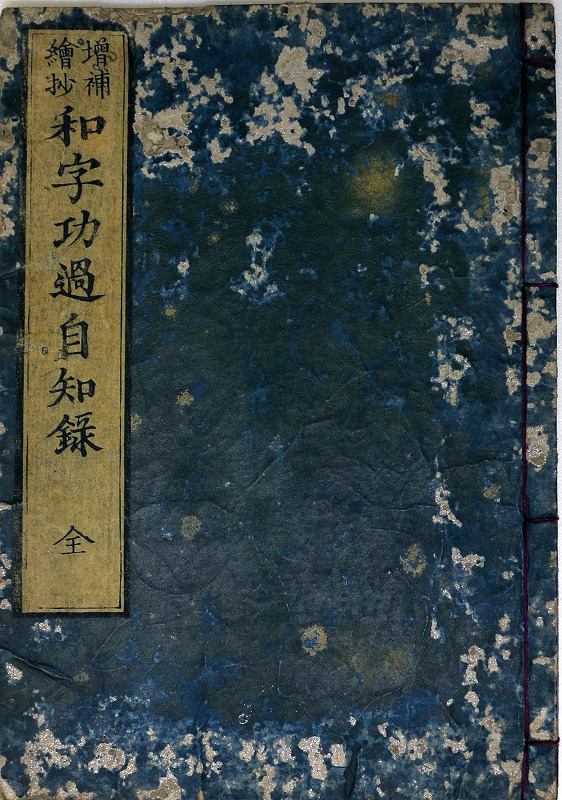 增補
繪抄
和字功過自知錄
全